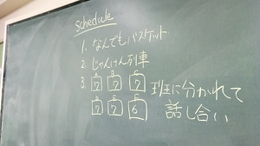 schedule
1. なんでもバスケット
2. じゃんけん列車
3. 7 7 7 班に分かれて
7 7 6 話し合い